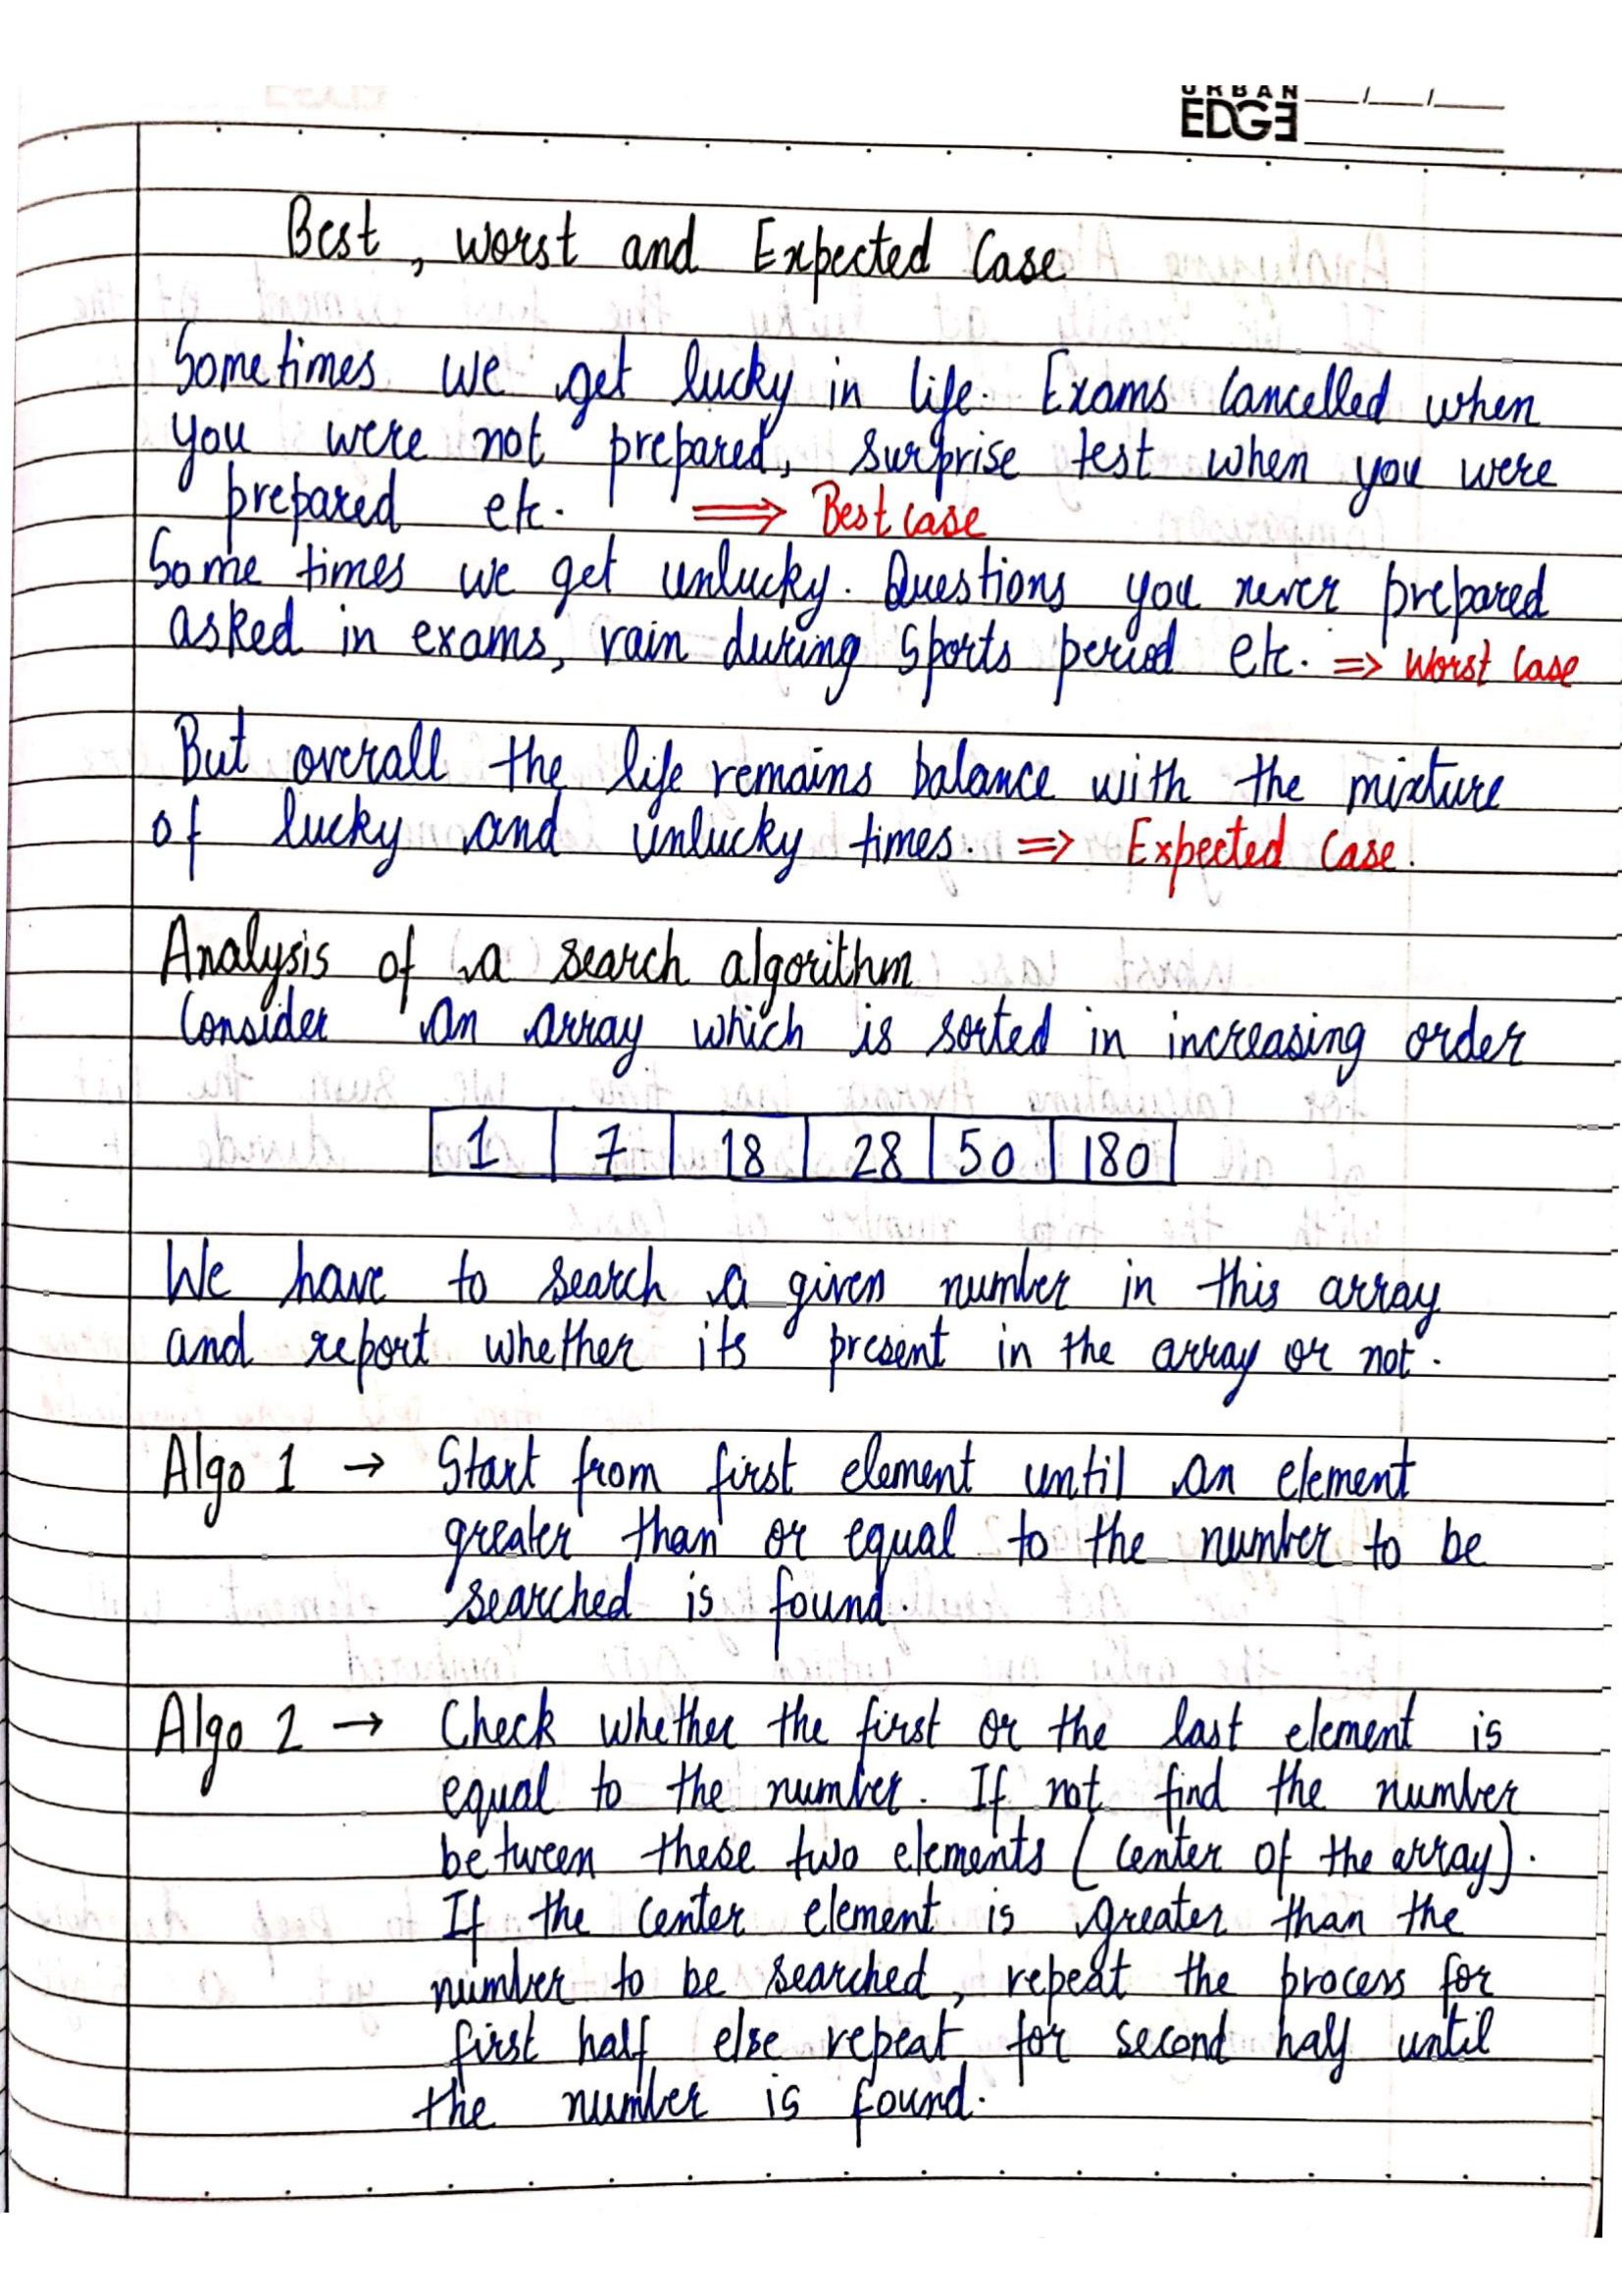 URBAN
EDGE
Best, worst and Expected Case
Sometimes we get lucky in life. Exams cancelled when
you were not prepared, surprise test when you were
prepared etc. ⟹ Best case
Some times we get unlucky. Questions you never prepared
asked in exams, rain during Sports period etc. => Worst Case
But overall the life remains balance with the mixture
of lucky and unlucky times. => Expected Case.
Analysis of a search algorithm
Consider an array which is sorted in increasing order
1 7 18 28 50 180
We have to search a given number in this array
and report whether its present in the array or not.
Algo 1 → Start from first element until an element
greater than or equal to the number to be
searched is found.
Algo 2 → Check whether the first or the last element is
equal to the number. If not find the number
between these two elements (center of the array).
If the center element is greater than the
number to be searched, repeat the process for
first half else repeat for second half until
the number is found.